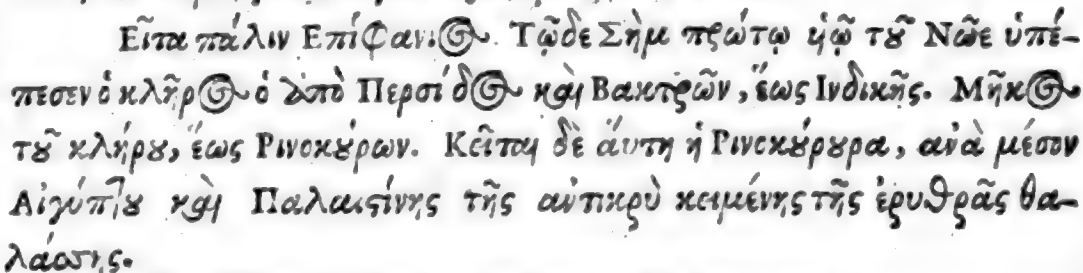 Εἶτα πάλιν Επίφανιος. Τῷδε Σὴμ πρώτῳ ὑῷ τοῦ Νῶε ὑπέ-
πεσεν ὁ κλῆρος ὁ ἀπὸ Περσίδος καὶ Βακτρῶν, ἕως Ινδικῆς. Μῆκος
τοῦ κλήρου, ἕως Ρινοκούρων. Κεῖται δὲ ἅυτη ἡ Ρινοκούρουρα, ανὰ μέσον
Αἰγύπτου καὶ Παλαιστίνης τῆς αντικρὺ κειμένης τῆς ἐρυθρᾶς θα-
λάσσης.